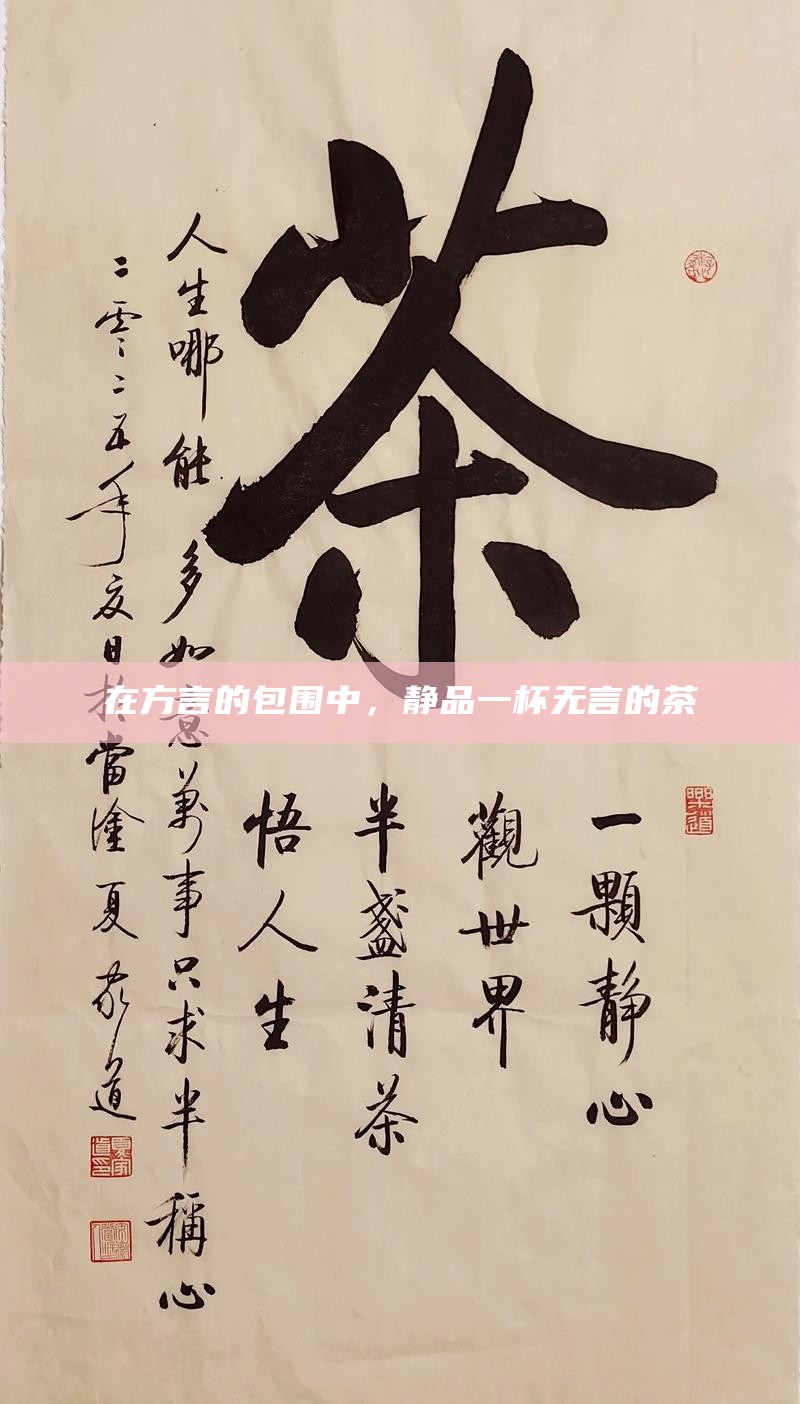 茶
一顆静心
觀世界
半盞清茶
悟人生
人生哪能多如意萬事只求半稱心
二零二五年夏日於當塗夏家道
在方言的包围中，静品一杯无言的茶
樂道
夏家道印